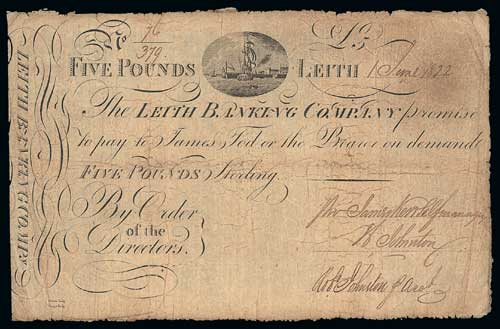 No 76
379
£5
FIVE POUNDS LEITH 1 June 1822
The LEITH BANKING COMPANY promise
to pay to James Tod or the Bearer on demand
FIVE POUNDS Sterling.
By Order
of the
Directors.
James Ker manager
Johnston
Robt Johnston
LEITH BANKING COMPY